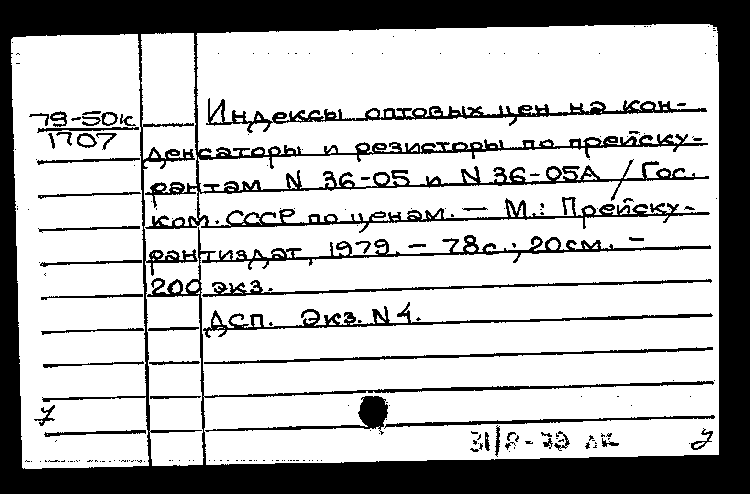 79-50к
1707
Индексы оптовых цен на кон-
денсаторы и резисторы по прейску-
рантам N 36-05 и N 36-05А / Гос.
ком. СССР по ценам. — М.: Прейску-
рантиздат, 1979. — 78с.; 20см. —
200 экз.
ДСП. Экз. N 4.
31/8-79 лк